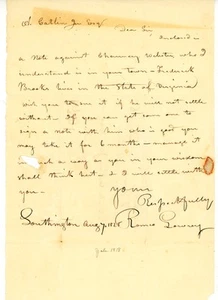 Wm Catlin Jr Esq
Dear Sir
Enclosed is
a Note against Chauncey Webster who I
understand is in your Town - Frederick
Brooks him in the State of Virginia
will you turn it if he will not settle
without. If you can get some one to
sign a note with him who is good you
may take it for 6 months - manage it
in such a way as you in your wisdom
shall think best & I will settle with
you -
yours
Respectfully
Southington Aug 7, 1818 Romeo Lowrey